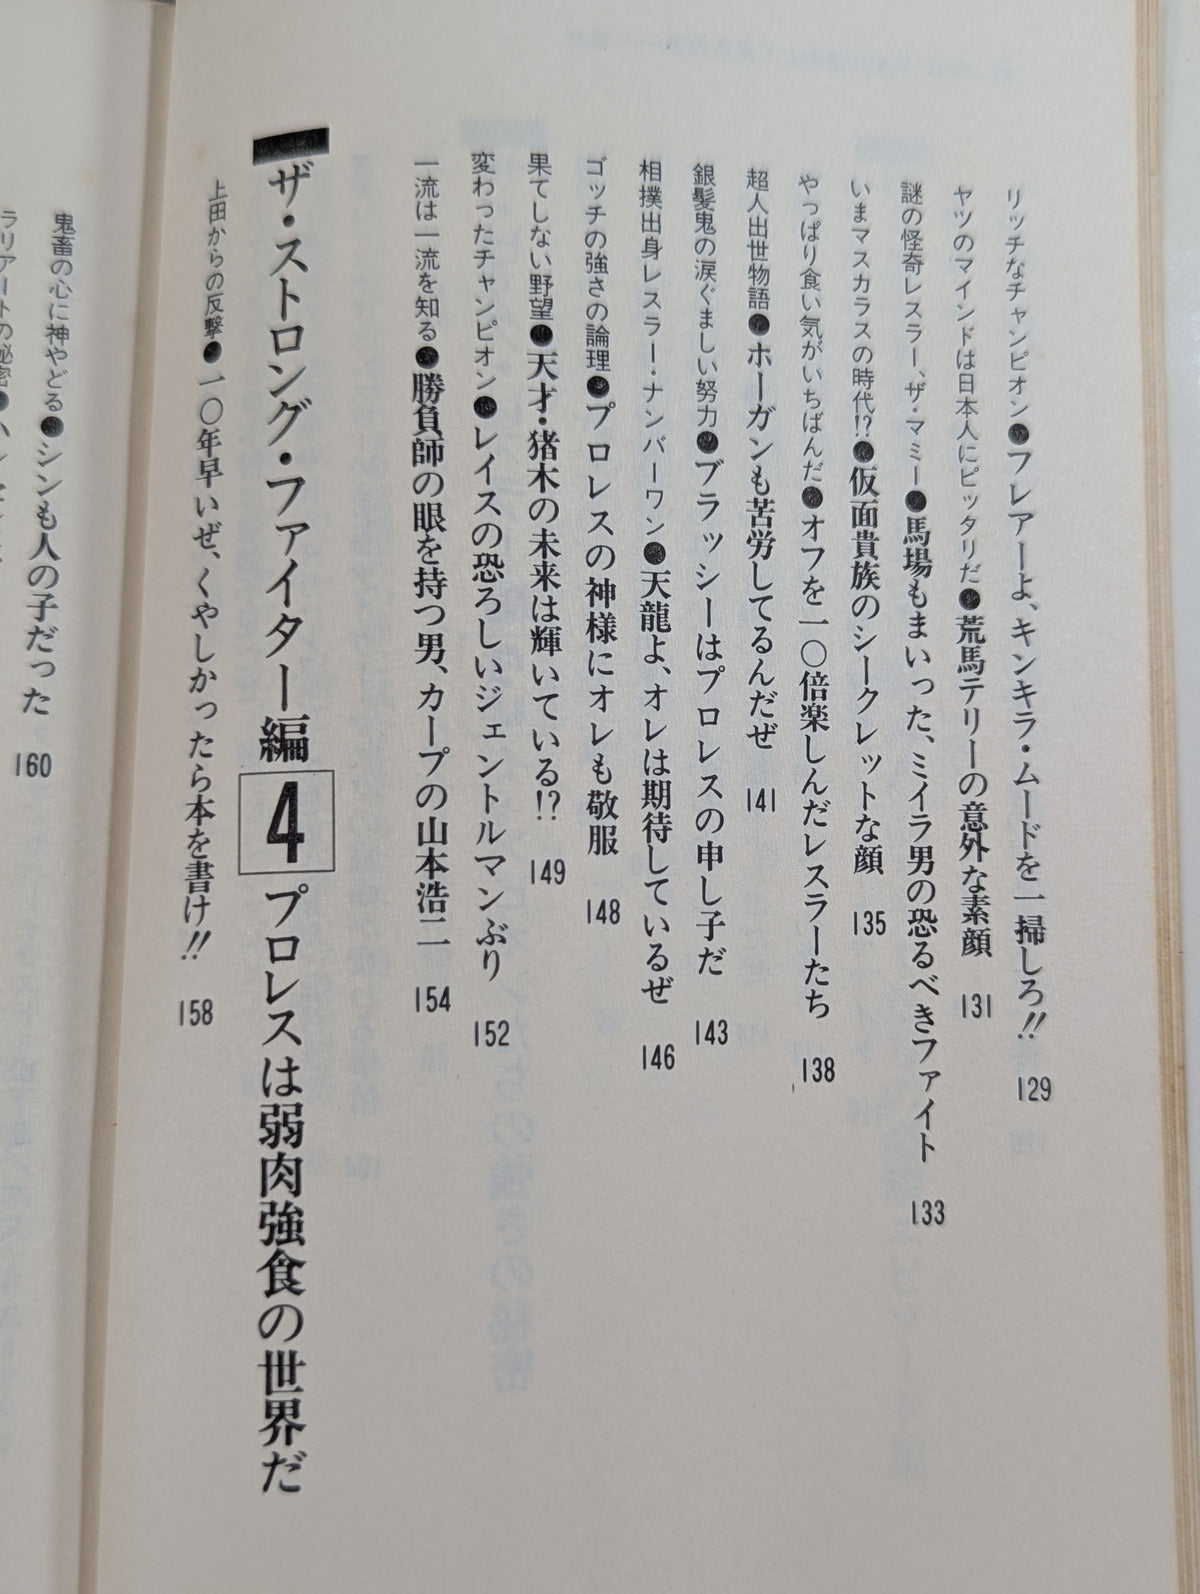 リッチなチャンピオン●フレアーよ、キンキラ・ムードを一掃しろ!! 129
ヤツのマインドは日本人にピッタリだ●荒馬テリーの意外な素顔 131
謎の怪奇レスラー、ザ・マミー●馬場もまいった、ミイラ男の恐るべきファイト 133
いまマスカラスの時代!?●仮面貴族のシークレットな顔 135
やっぱり食い気がいちばんだ●オフを一〇倍楽しんだレスラーたち 138
超人出世物語●ホーガンも苦労してるんだぜ 141
銀髪鬼の涙ぐましい努力●ブラッシーはプロレスの申し子だ 143
相撲出身レスラー・ナンバーワン●天龍よ、オレは期待しているぜ 146
ゴッチの強さの論理●プロレスの神様にオレも敬服 148
果てしない野望●天才・猪木の未来は輝いている!? 149
変わったチャンピオン●レイスの恐ろしいジェントルマンぶり 152
一流は一流を知る●勝負師の眼を持つ男、カープの山本浩二 154
ザ・ストロング・ファイター編 4 プロレスは弱肉強食の世界だ
上田からの反撃●一〇年早いぜ、くやしかったら本を書け!! 158
鬼畜の心に神やどる●シンも人の子だった 160
ラリアートの秘密●